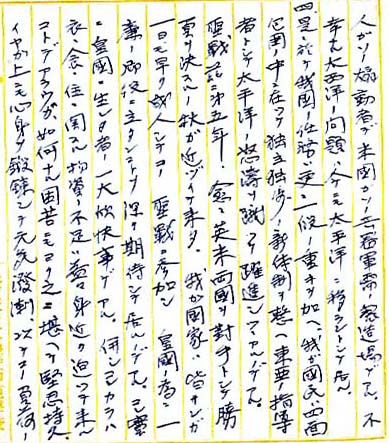 人がソノ煽動者デ米国ガソノ兵器軍需ノ製造場デアル。不
幸ニモ大西洋ノ問題ハ今ニモ太平洋ニ移ラントシテ居ル
四是ニ於テ我国ノ任務ハ更ニ一段ノ重キヲ加ヘ我ガ国民ハ四面
包囲ノ中ニ在ツテ独立独歩ノ新体制ヲ整ヘ東亜ノ指導
者トシテ太平洋ノ怒濤ヲ蹴ツテ躍進シツツアルノデアル。
聖戦茲ニ第五年 愈々英米両国ヲ対手トシテ勝
負ヲ決スルノ秋ガ近ヅイテ来タ。我ガ国家ハ皆サンガ
一日モ早ク成人シテコノ聖戦ニ参加シ 皇国ノ為ニ一
廉ノ御役ニ立タンコトヲ深ク期待シテ居ルノデアル。コレ実
ニ皇国ニ生レタ者ノ一大欣快事デアル。何レコレカラハ
衣、食、住ニ関スル物資ノ不足ハ益々身近ク迫ツテ来ル
コトデアラウガ如何ナル困苦モヨク之ニ堪ヘテ堅忍持久
イヤガ上ニモ心身ヲ鍛錬シテ元気溌溂、以テコノ負荷ノ